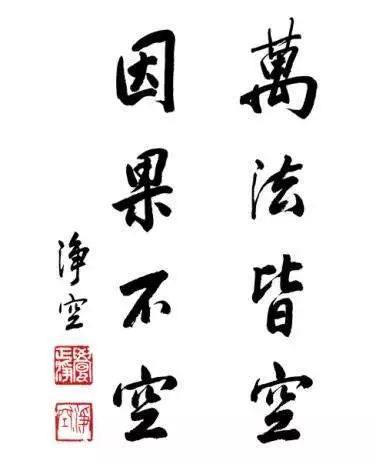 萬法皆空
因果不空
淨空
淨空